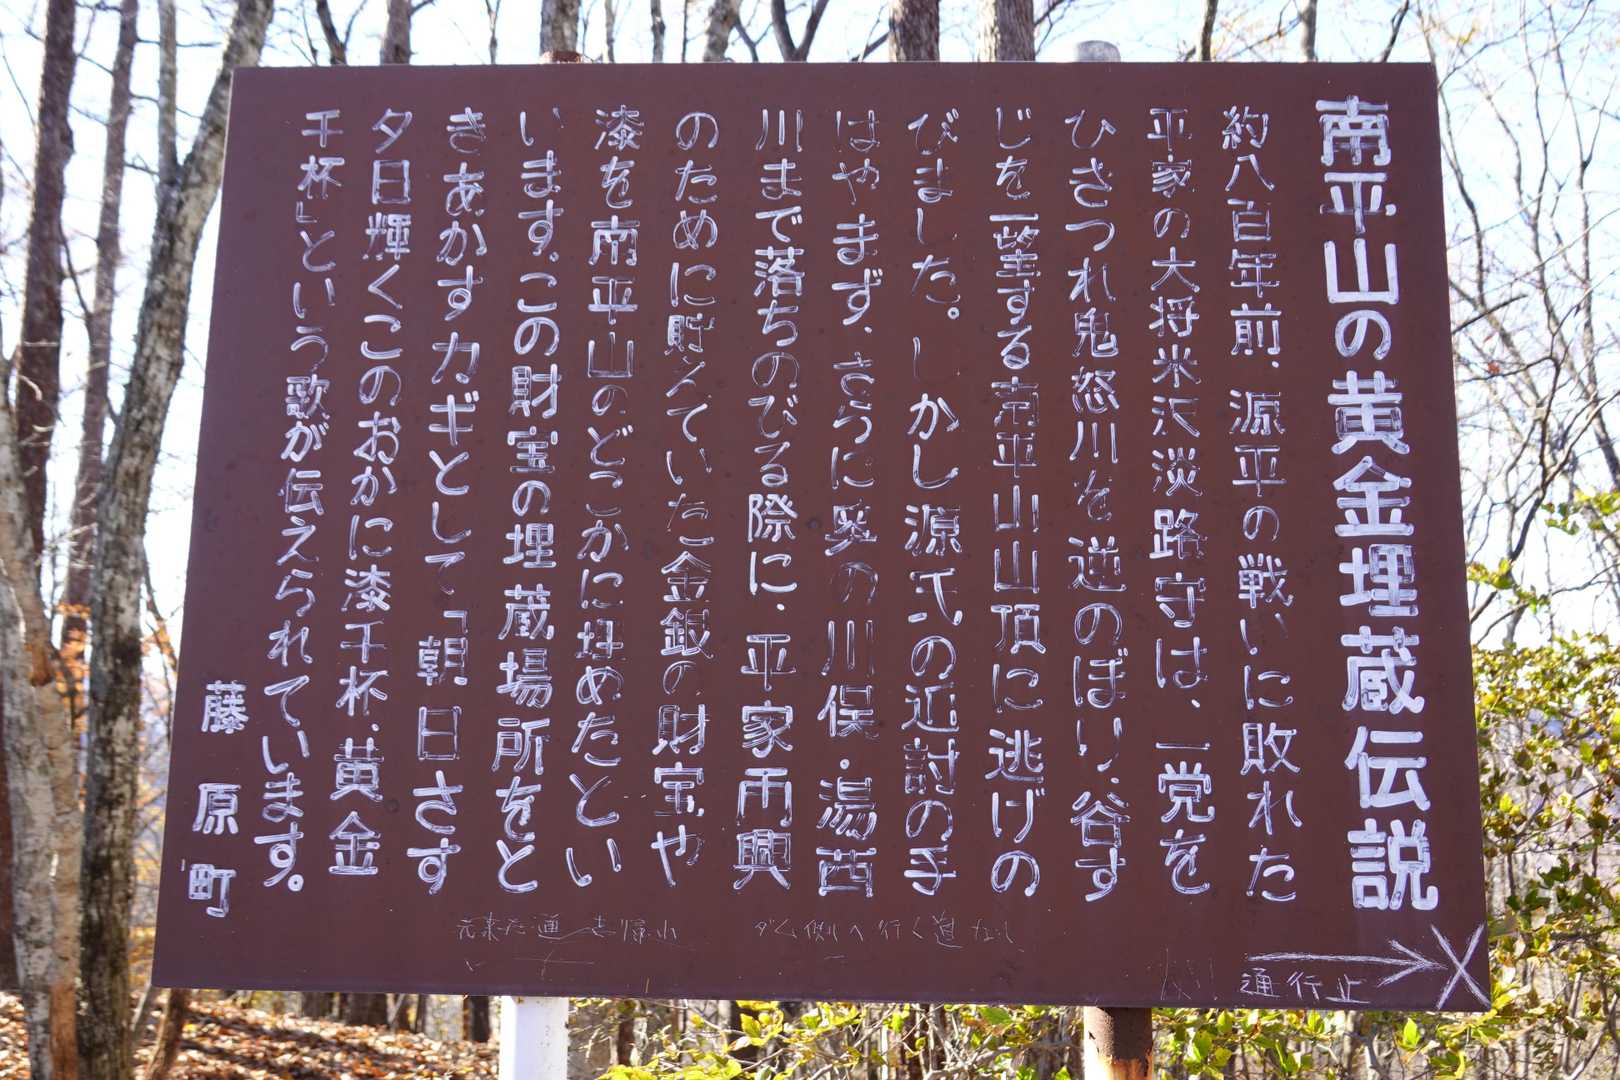 南平山の黄金埋蔵伝説
約八百年前、源平の戦いに敗れた
平家の大将米沢淡路守は、一党を
ひきつれ鬼怒川を逆のぼり、谷す
じを一望する南平山山頂に逃げの
びました。しかし源氏の近討の手
はやまず、さらに奥の川俣・湯西
川まで落ちのびる際に、平家再興
のために貯えていた金銀の財宝や
漆を南平山のどこかに埋めたとい
います。この財宝の埋蔵場所をと
きあかすカギとして、「朝日さす
夕日輝くこのおかに漆千杯、黄金
千杯」という歌が伝えられています。
藤原町
元来た道
ダム側へ行く道なし
通行止